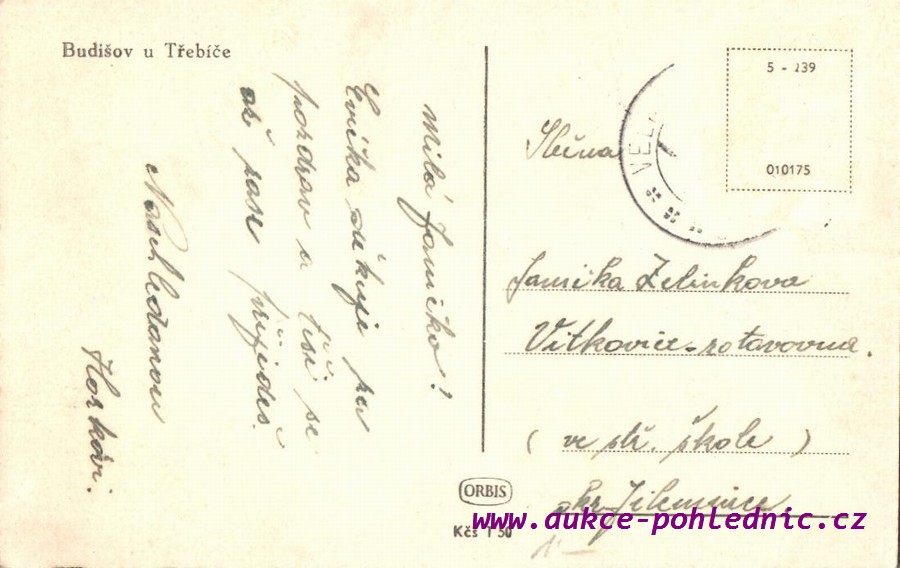 Budišov u Třebíče
Milá Janičko!
Evička děkuji za
pozdrav a těší se
až zase přijdeš.
Nashledanou
Horkovi.
5 - 139
010175
VEL
Slečna
Janička Zelinkova
Vitkovice-zotavovna.
(ve stř. škole)
okr. Jilemnice
ORBIS
Kčs 1 50
www.aukce-pohlednic.cz